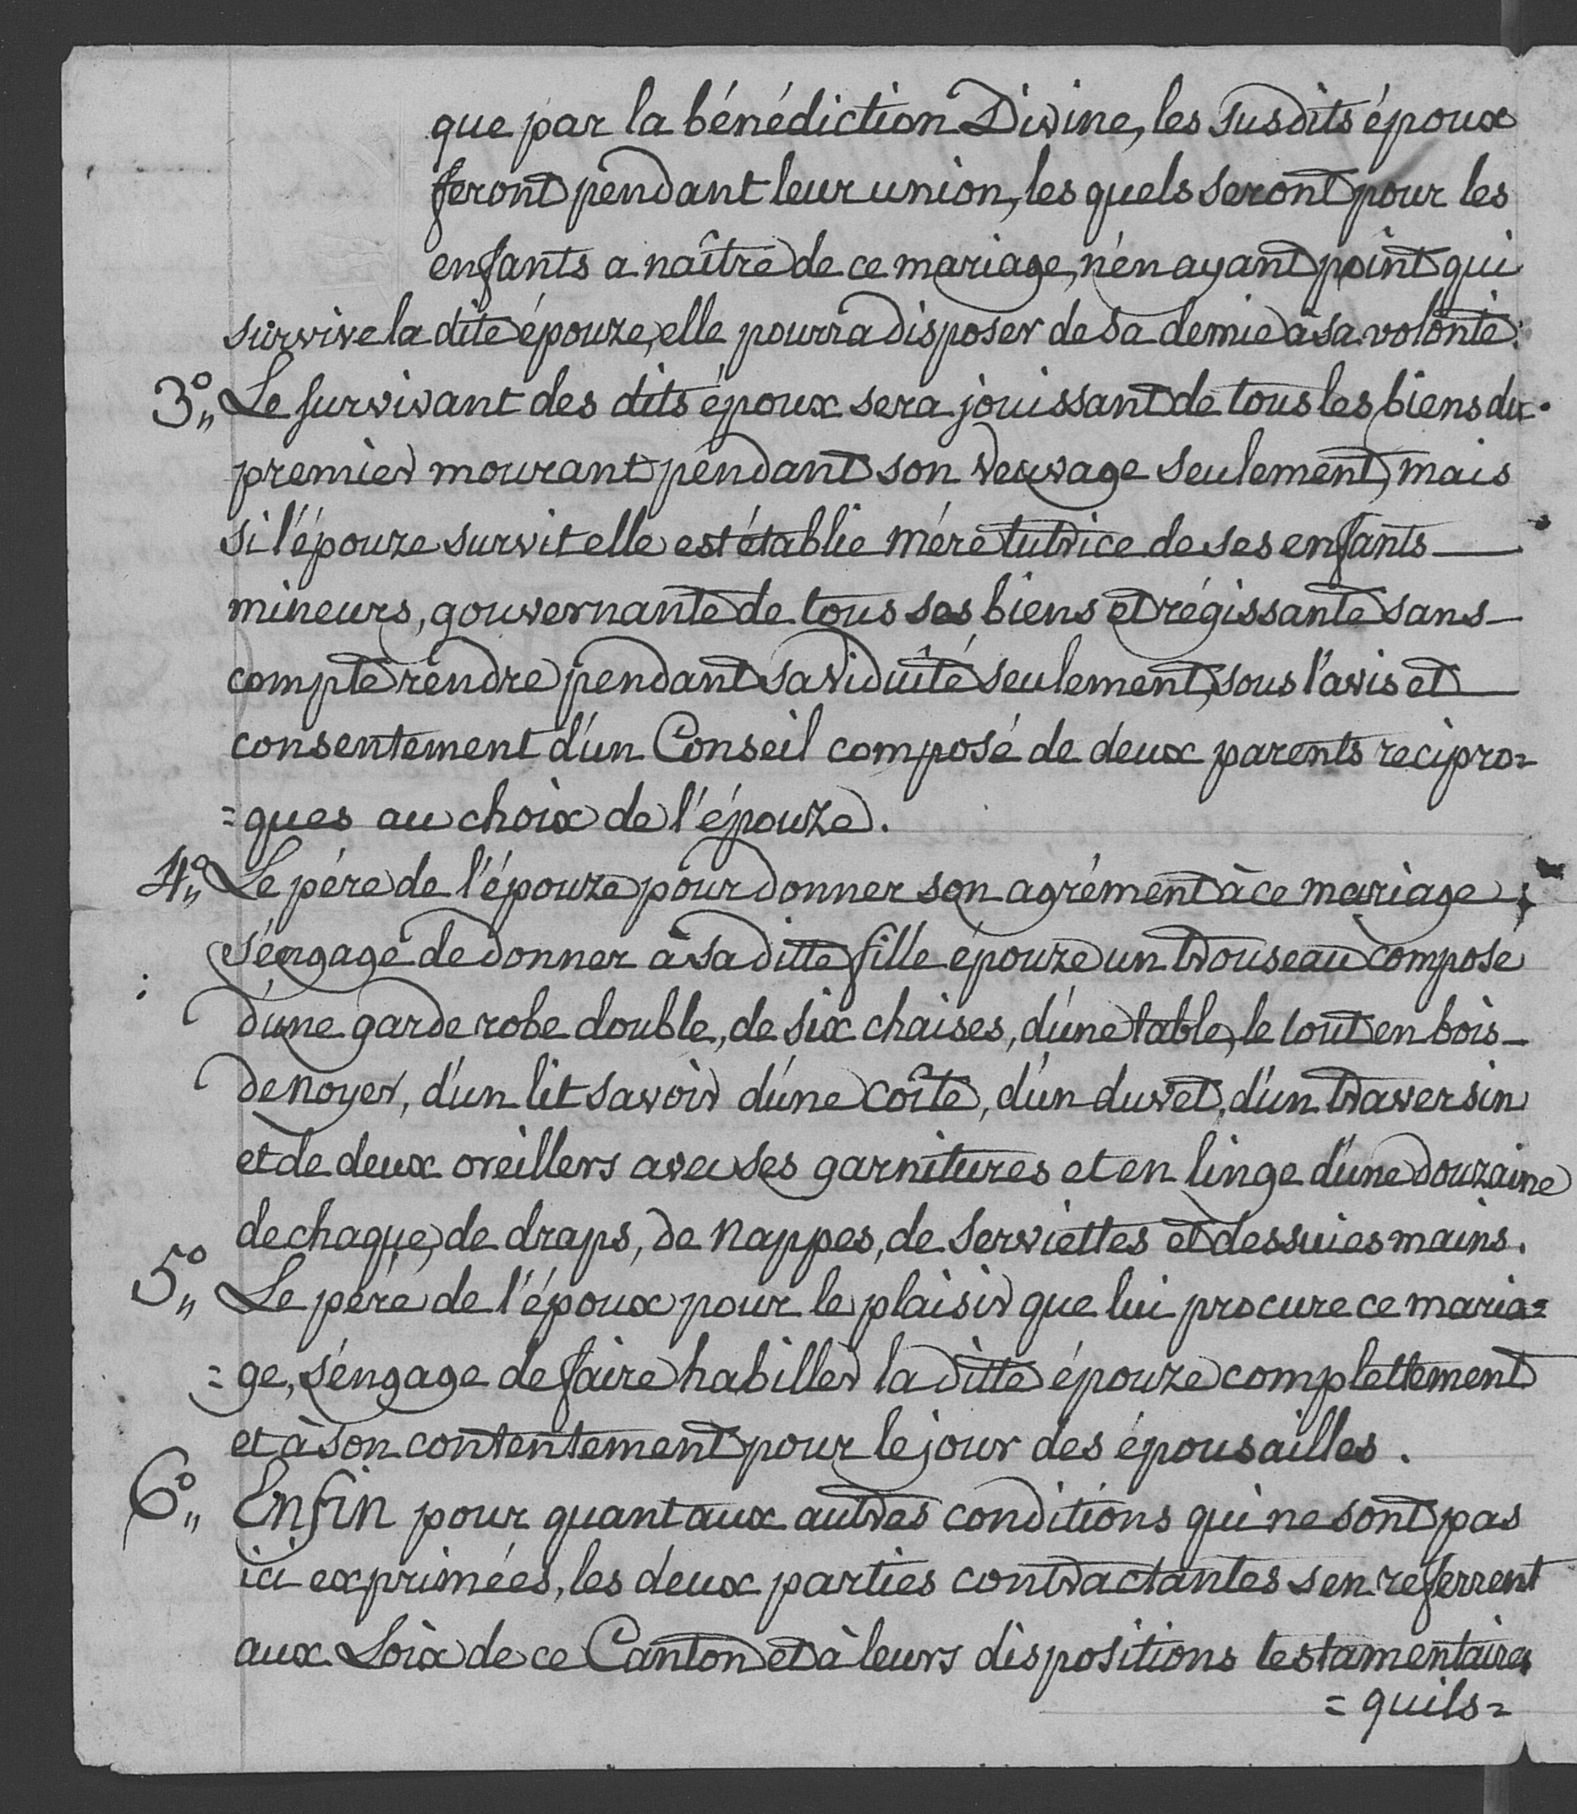 que par la bénédiction Divine, les susdits époux
feront pendant leur union, les quels seront pour les
enfants a naître de ce mariage, n'én ayant point qui
survive la dite épouze, elle pourra disposer de sa demie à sa volonté.
3° Le survivant des dits époux sera jouissant de tous les biens du
premier mourant pendant son veuvage seulement, mais
si l'épouze survit elle est établie mére tutrice de ses enfants
mineurs, gouvernante de tous ses biens et régissante sans
compte rendre pendant sa viduité seulement, sous l'avis et
consentement d'un Conseil composé de deux parents recipro=
=ques au choix de l'épouze.
4° Le pére de l'épouze pour donner son agrément à ce mariage
s'éngage de donner à sa ditte fille épouze un trouseau composé
d'une garde robe double, de six chaises, d'une table, le tout en bois
de noyer, d'un lit savoir d'une coîte, d'un duvet, d'un traversin
et de deux oreillers avec ses garnitures et en linge d'une douzaine
de chaque, de draps, de Nappes, de serviettes et dessuies mains.
5° Le pére de l'époux pour le plaisir que lui procure ce maria=
=ge, s'éngage de faire habiller la ditte épouze complettement
et à son contentement pour le jour des épousailles.
6° Enfin pour quant aux autres conditions qui ne sont pas
ici exprimées, les deux parties contractantes s'en referrent
aux Loix de ce Canton et à leurs dispositions testamentaires
= quils =